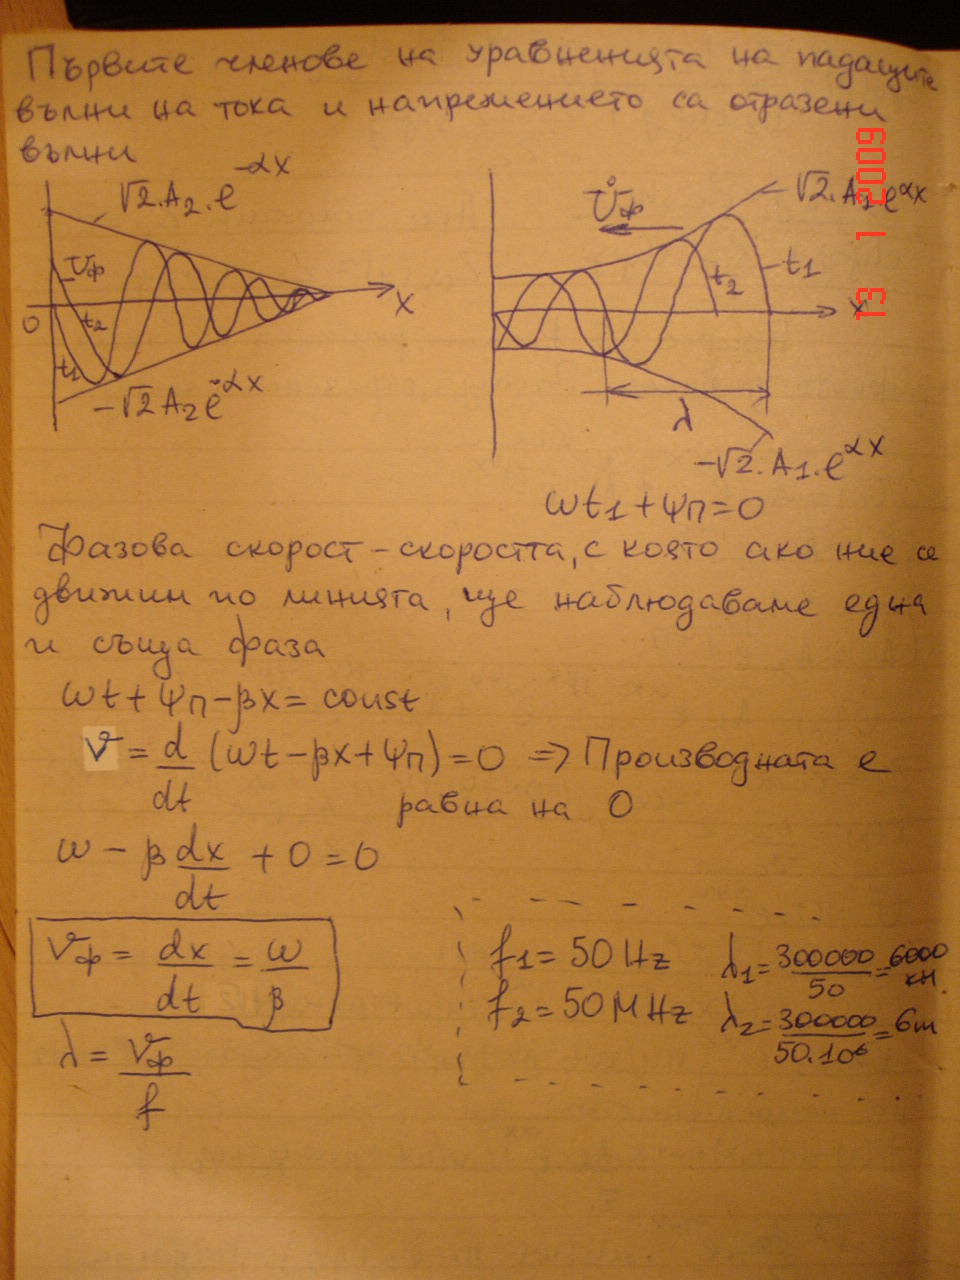 Първите членове на уравненията на падащите
вълни на тока и напрежението са отразени
вълни
√2.A₂.e^-αx
Vф
t₂
t₁
0
x
-√2A₂e^-αx
√2.A₁e^αx
V̊ф
t₂
t₁
x
λ
-√2.A₁.e^αx
ωt₁+ψп=0
13 1 2009
Фазова скорост - скоростта, с която ако ние се
движим по линията, ще наблюдаваме една
и съща фаза
ωt+ψп-βx = const
V = d/dt (ωt-βx+ψп) = 0 => Производната е
равна на 0
ω - β dx/dt + 0 = 0
Vф = dx/dt = ω/β
λ = Vф/f
f₁ = 50 Hz λ₁ = 300000/50 = 6000 км.
f₂ = 50 MHz λ₂ = 300000/50.10⁶ = 6m